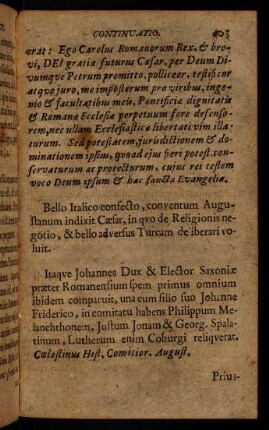 CONTINUATIO. 403
erat: Ego Carolus Romanorum Rex. & bre-
vi, DEI gratia futurus Cæsar, per Deum Di-
vumqve Petrum promitto, polliceor, testificor
atqve juro, me imposterum pro viribus, inge-
nio & facultatibus meis, Pontificiæ dignitatis
& Romanæ Ecclesiæ perpetuum fore defenso-
rem, nec ullam Ecclesiasticæ libertati vim illa-
turum. Sed potestatem, jurisdictionem & do-
minationem ipsius, qvoad ejus fieri potest, con-
servaturum ac protecturum, cujus rei testem
voco Deum ipsum & hæc sancta Evangelia.
Bello Italico confecto, conventum Augu-
stanum indixit Cæsar, in qvo de Religionis ne-
gotio, & bello adversus Turcam deliberari vo-
luit.
Itaqve Johannes Dux & Elector Saxoniæ
præter Romanensium spem primus omnium
ibidem comparuit, una cum filio suo Johanne
Friderico, in comitatu habens Philippum Me-
lanchthonem, Justum Jonam & Georg. Spala-
tinum, Lutherum enim Coburgi reliqverat.
Cœlestinus Hist. Comitior. August.
Prius-